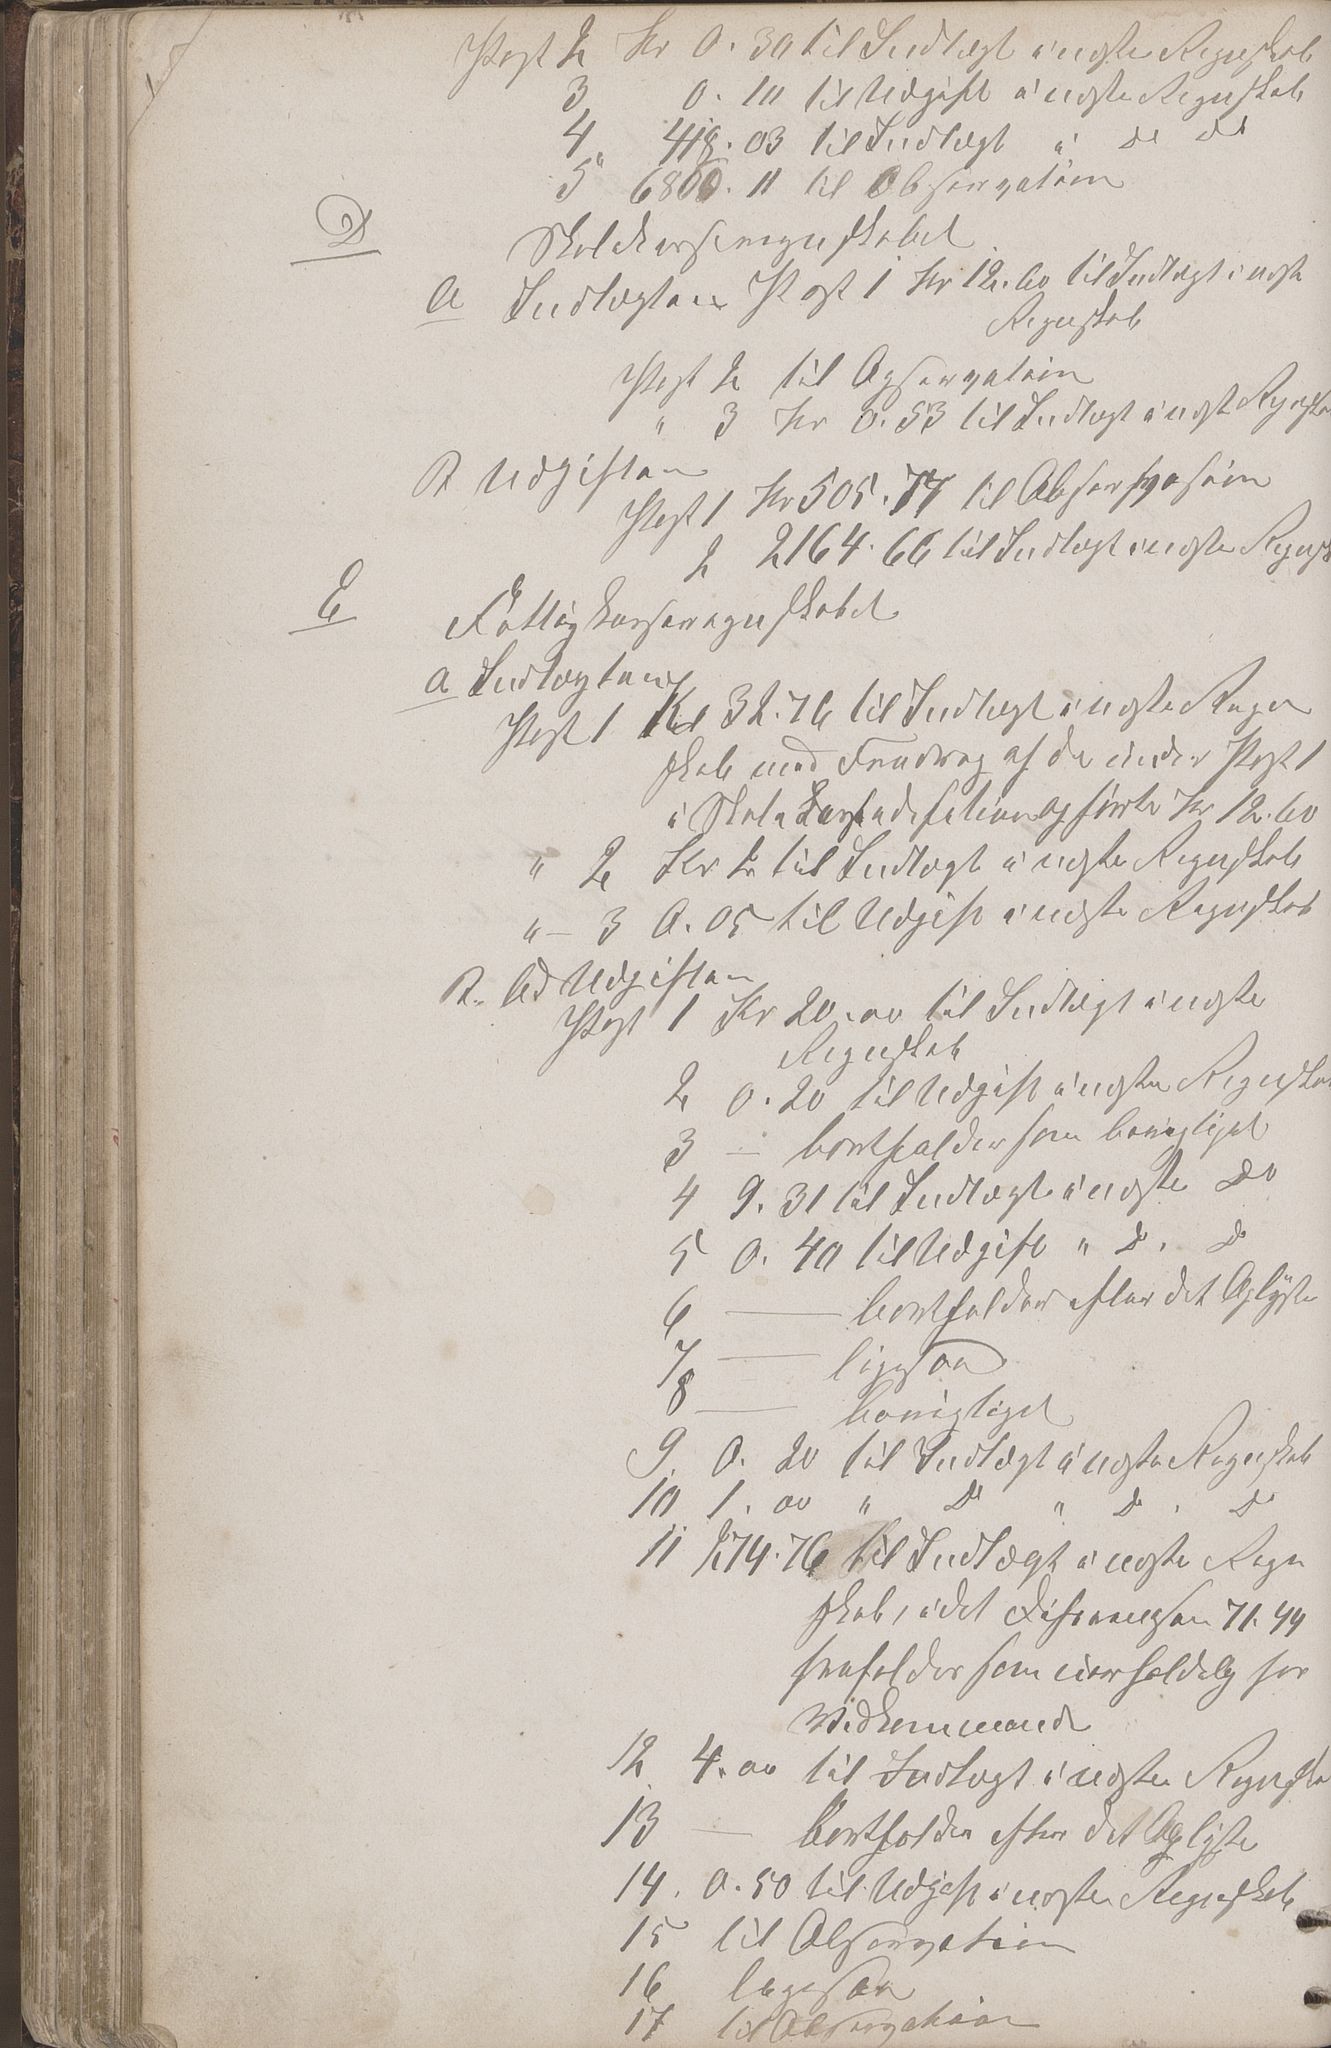 Post 2 Kr 0.30 til Indtægt i næste Regnskab
3 0.10 til Udgift i næste Regnskab
4 418.03 til Indtægt i Do Do
5 6800.11 til Observation
D Skolekasseregnskabet
a Indtægten Post 1 Kr 12.60 til Indtægt i næste
Regnskab
Post 2 til Observation
" 3 Kr 0.53 til Indtægt i næste Regnskab
B Udgiften
Post 1 Kr 505.77 til Observation
2 2164.66 til Indtægt i næste Regnsk
E Fattigkasseregnskabet
a Indtægten
Post 1 Kr 32.76 til Indtægt i næste Regn
skab med Fradrag af de under Post 1
i Skolekasse opførte Kr 12.60
" 2 Kr 2 til Indtægt i næste Regnskab
" – 3 0.05 til Udgift i næste Regnskab
B. Ad Udgiften
Post 1 Kr 20.00 til Indtægt i næste
Regnskab
2 0.20 til Udgift i næste Regnskab
3 — bortfalder som bevilget
4 9.31 til Indtægt i næste Do
5 0.40 til Udgift " D. Do
6 — bortfalder efter det Oplyste
7 — ligesaa
8 — bevilget
9. 0.20 til Indtægt i næste Regnskab
10 1.00 " Do " D. Do
11 274.76 til Indtægt i næste Regn
skab, idet Differencen 71.44
frafalder som uerholdelig for
Vedkommende
12. 4.00 til Indtægt i næste Regnska
13 — bortfalder efter det Oplyste
14. 0.50 til Udgift i næste Regnskab
15 til Observation
16 ligesaa
17 til Observation